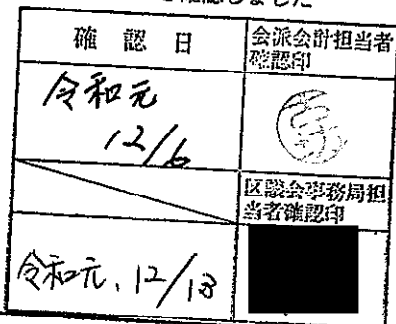 確認しました
確認日
会派会計担当者
確認印
令和元
12/6
区議会事務局担
当者確認印
令和元、12/13